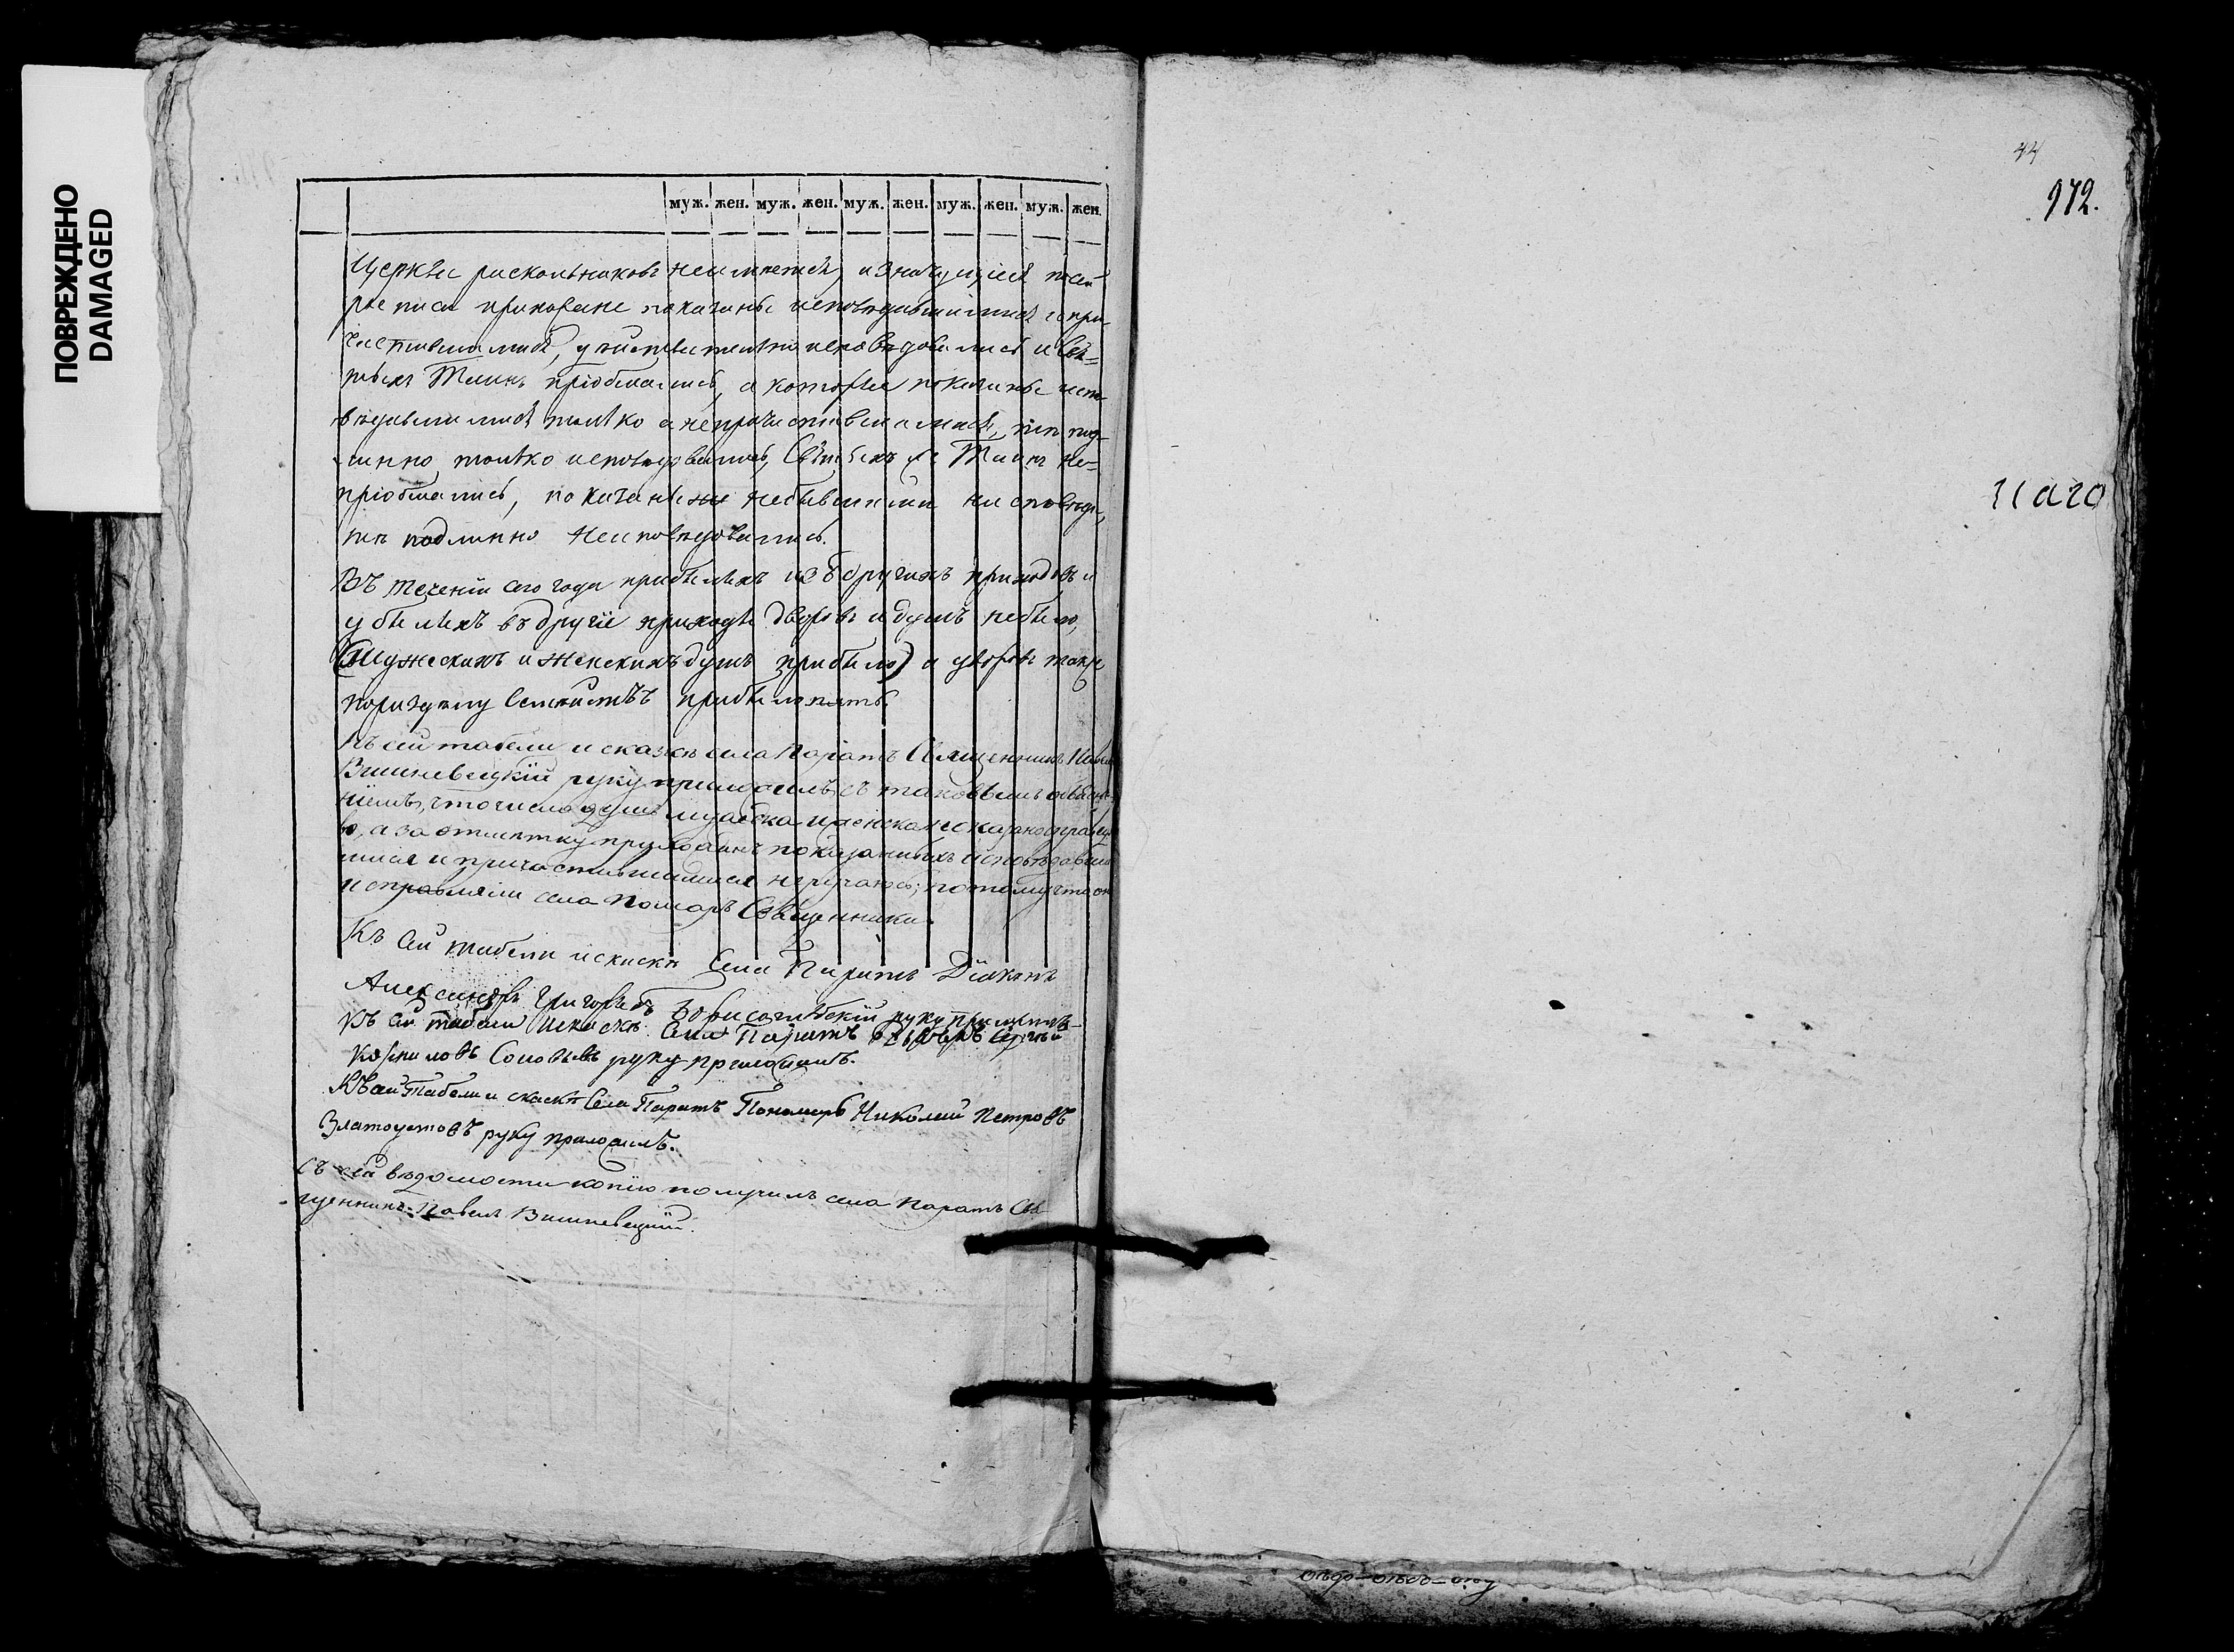 ПОВРЕЖДЕНО
DAMAGED
муж. жен. муж. жен. муж. жен. муж. жен. муж. жен.
Церквы раскольниковъ неимѣется, изначущіеся посей
росписи прихожане показаны исповѣдавшимися и при-
частившимися, исповѣдовались и Свя-
тыхъ Таинъ пріобщались, а которые показаны испо-
вѣдавшимися только а непричастившимися, тѣ под-
линно только исповѣдовались, Святыхъ же Таинъ не-
пріобщались, показаны же небывшими на исповѣди,
тѣ подлинно неисповѣдовались.
Въ теченіи сего года прибылыхъ изъ другихъ приходовъ и
убылыхъ въ другіе приходы дворовъ и душъ небыло,
(Мужескихъ и женскихъ душъ прибыло) а дворовъ также
поразделу Семействъ прибыло пять.
Къ сей табели и сказкѣ села Паратъ Священникъ Павелъ
Вишневецкій руку приложилъ съ таковымъ объясне-
ніемъ, что число душъ мужеска и женска показано справедли-
во, а за отмѣтку прихожанъ показанныхъ исповѣдавши-
мися и причастившимися неручаюсь; потому что они
исправляли села Помаръ Священники.
Къ сей табели и скаскѣ Села Паратъ Діаконъ
Александръ Григорьевъ Борисоглебскій руку приложилъ
Къ сей табели и скаскѣ Села Паратъ Дьячекъ Сергѣй
Корниловъ Соловьевъ руку приложилъ.
Къ сей Табели и скаскѣ Села Паратъ Пономарь Николай Петровъ
Златоустовъ руку приложилъ.
Съ сей вѣдомости копію получилъ села Паратъ Свя-
щенникъ Павелъ Вишневецкій.
44
972.